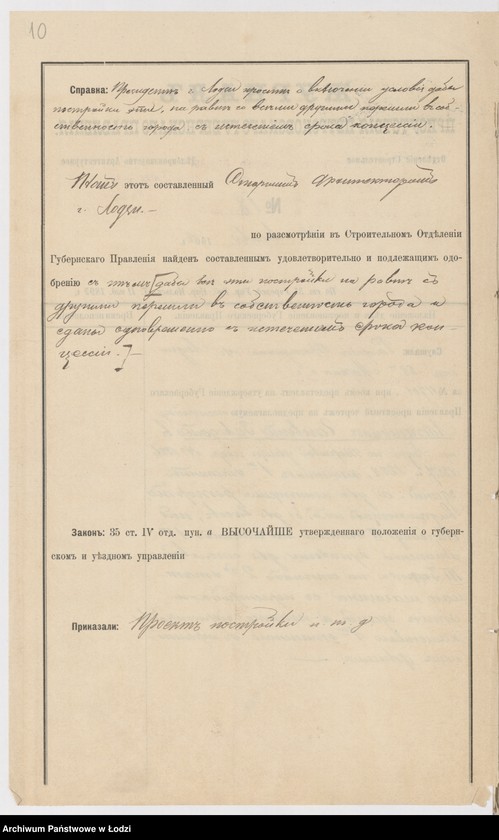 10
Справка: Президентъ г. Лодзи проситъ о включеніи условія дабы
постройки эти, на равнѣ со всѣми другими перешли въ соб-
ственность города съ истеченіемъ срока концессіи.
этотъ составленный Старшимъ Архитекторомъ
г. Лодзи.—
по разсмотрѣніи въ Строительномъ Отдѣленіи
Губернскаго Правленія найденъ составленнымъ удовлетворительно и подлежащимъ одо-
бренію съ тѣмъ [дабы всѣ эти постройки на равнѣ съ
другими перешли въ собственность города и
сданы одновременно съ истеченіемъ срока кон-
цессіи.]—
Законъ: 35 ст. IV отд. пун. а ВЫСОЧАЙШЕ утвержденнаго положенія о губерн-
скомъ и уѣздномъ управленіи
Приказали: Проектъ постройки и. т. д.
Archiwum Państwowe w Łodzi